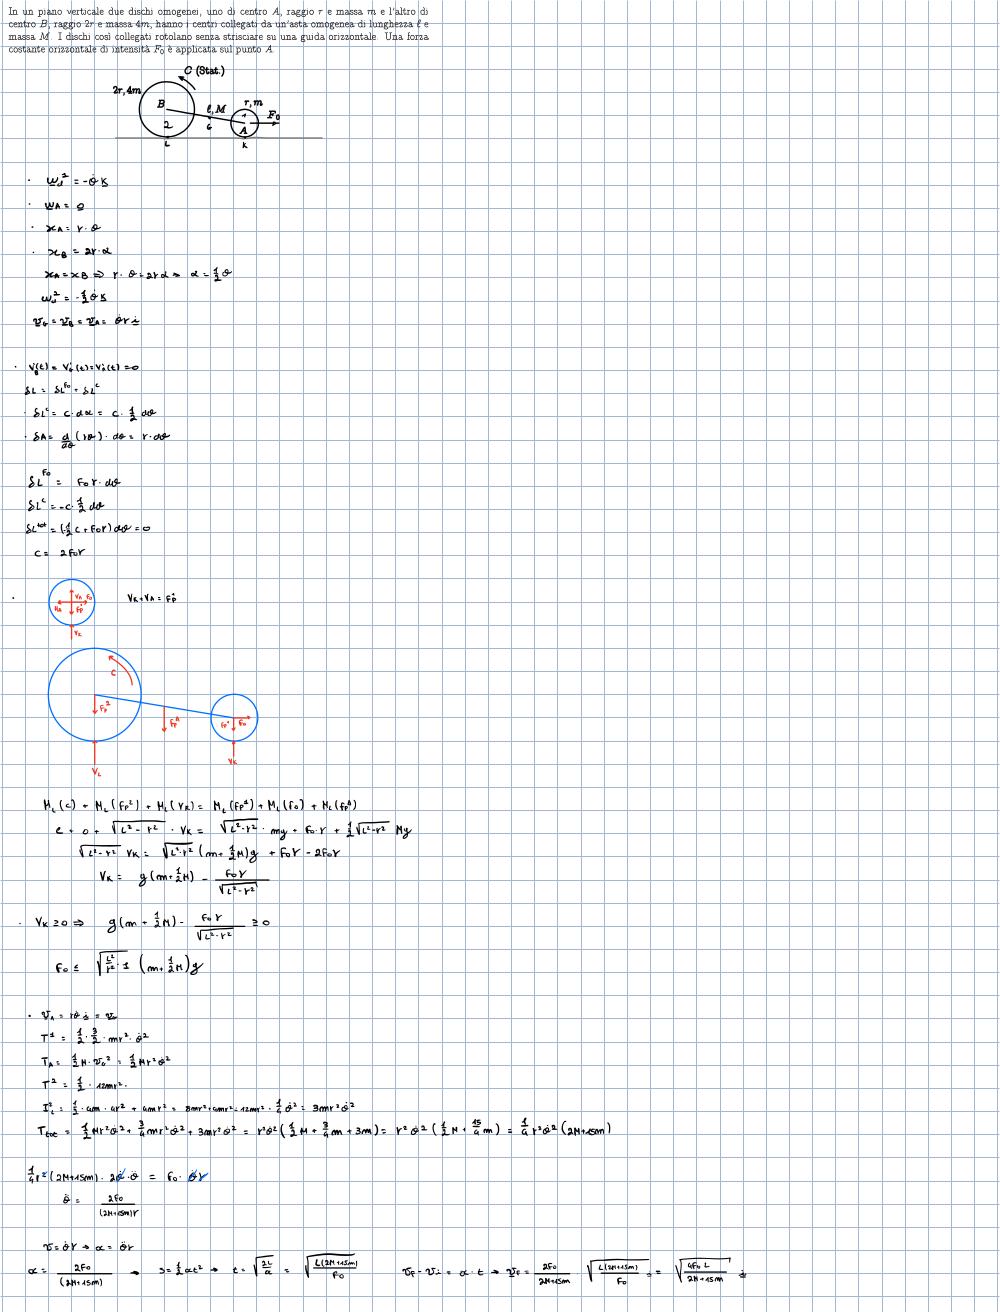 In un piano verticale due dischi omogenei, uno di centro A, raggio r e massa m e l'altro di
centro B, raggio 2r e massa 4m, hanno i centri collegati da un'asta omogenea di lunghezza ℓ e
massa M. I dischi così collegati rotolano senza strisciare su una guida orizzontale. Una forza
costante orizzontale di intensità F₀ è applicata sul punto A.
C (Stat.)
2r, 4m
B
ℓ, M
r, m
F₀
2
G
1
A
L
K
· ω_d² = -θ̇ k
· ω_A = 0
· x_A = r·θ
· x_B = 2r·α
x_A = x_B ⇒ r·θ = 2rα ⇒ α = 1/2 θ
ω_d² = -1/2 θ̇ k
v_G = v_B = v_A = θ̇ r i
δL = δL^F₀ + δL^C
· δL^C = C·dα = C·1/2 dθ
· δA = d/dθ (rθ)·dθ = r·dθ
δL^F₀ = F₀ r·dθ
δL^C = -C·1/2 dθ
δL^tot = (-1/2 C + F₀r) dθ = 0
C = 2F₀r
V_A F₀
H_A F_P¹
V_K
V_K + V_A = F_P¹
C
F_P²
F_P^A
F_P¹ F₀
V_L
V_K
M_L(C) + M_L(F_P²) + M_L(V_K) = M_L(F_P¹) + M_L(F₀) + M_L(F_P^A)
C + 0 + √(L²-r²) · V_K = √(L²-r²) · mg + F₀·r + 1/2 √(L²-r²) Mg
√(L²-r²) V_K = √(L²-r²) (m + 1/2 M) g + F₀r - 2F₀r
V_K = g(m + 1/2 M) - F₀r/√(L²-r²)
· V_K ≥ 0 ⇒ g(m + 1/2 M) - F₀r/√(L²-r²) ≥ 0
F₀ ≤ √(L²/r² - 1) (m + 1/2 M) g
T¹ = 1/2 · 3/2 · mr² · θ̇²
T_A = 1/2 M · v_G² = 1/2 Mr²θ̇²
T² = 1/2 · 12mr² ·
I_L² = 1/2 · 4m · 4r² + 4mr² = 8mr² + 4mr² = 12mr² · 1/4 θ̇² = 3mr²θ̇²
T_tot = 1/2 Mr²θ̇² + 3/4 mr²θ̇² + 3mr²θ̇² = r²θ̇² (1/2 M + 3/4 m + 3m) = r²θ̇² (1/2 M + 15/4 m) = 1/4 r²θ̇² (2M+15m)
1/4 r² (2M+15m) · 2θ̇·θ̈ = F₀·θ̇r
θ̈ = 2F₀/((2M+15m)r)
v = θ̇r → α = θ̈r
α = 2F₀/(2M+15m) → s = 1/2 αt² → t = √(2L/α) = √(L(2M+15m)/F₀) v_f - v_i = α·t → v_f = 2F₀/(2M+15m) · √(L(2M+15m)/F₀) i = √(4F₀L/(2M+15m)) i